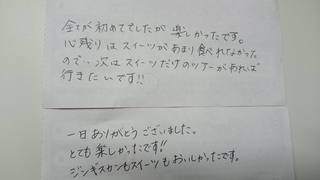 全てが初めてでしたが楽しかったです。
心残りはスイーツがあまり食べれなかった
ので‥次はスイーツだけのツアーがあれば
行きたいです!!
一日ありがとうございました。
とても楽しかったです!!
ジンギスカンもスイーツもおいしかったです。